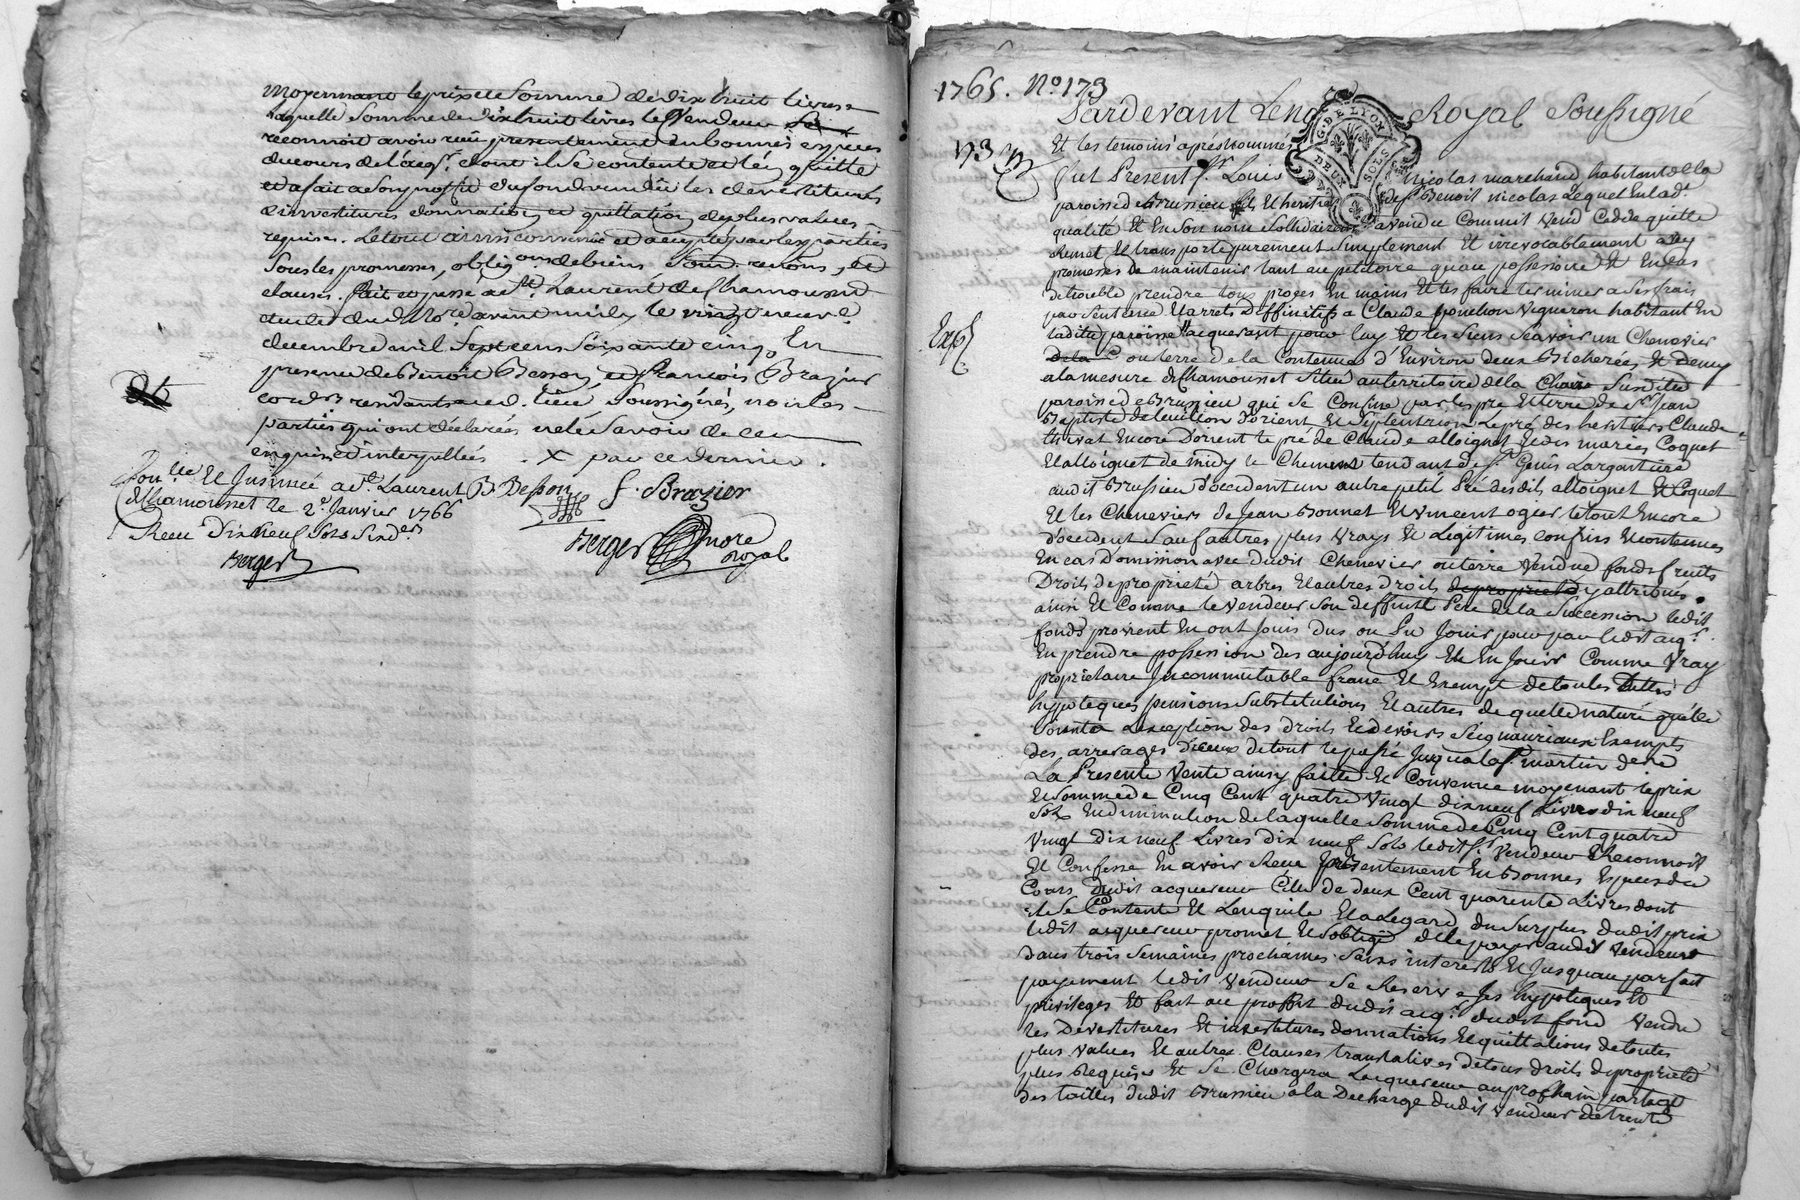 moyennant le prix et Somme de dix huit livres
laquelle Somme de dix huit livres le vendeur
reconnoit avoir reçu presentement en bonnes especes
du cours de l'acqr. dont il Se contente et l'en quitte
et a fait a Son proffit du fond vendu les devestitures
d'investitures donnation et quittation de plus values
requises. Le tout ainsi convenu et accepté par les parties
Sous les promesses, obligons. de biens renons, et
clauses. fait et passé a St. Laurent de Chamousset
etude dud. Nore. avant midy le vingt neuf
decembre mil Sept cens Soixante cinq, En
presence de Benoit Besson, et francois Brazier
cordrs residants aud. lieu Soussignés, non les
parties qui ont déclarées ne le Savoir de ce
enquises et interpellées . X par ce dernier .
Conlle. Et Insinué a St. Laurent
de Chamousset le 2e. Janvier 1766
Recu Dix Neuf Sols Six drs
Berger
B. Besson
f. Brazier
Berger nore
Royal
1765. No. 173
Pardevant Le no Royal Soussigné
173
Et les temoins aprés Nommés
fut Present Sr. Louis Nicolas marchand habitant de la
paroisse de Brussieu fils Et heritier de Sr. Benoit nicolas Lequel En lad.
qualité Et En Son nom Sollidairement a vendu Commit vend Cede quitte
Remet Et transporte purement Simplement Et irrevocablement avec
promesses de maintenir tant au petitoire qu'au possessoire Et En Cas
de trouble prendre tous proces En mains Et les faire terminer a Ses frais
par Sentence Et arrets Deffinitifs a Claude ponchon Vigneron habitant En
Exp
ladite paroisse acquerant pour luy Et les Siens Scavoir un Chenevier
ou terre de la Contenue d'Environ deux Bicherées Et demy
a la mesure de Chamousset Situé au territoire de la Susdite
paroisse de Brussieu qui Se Confine par les pré Et terre de Sr. Jean
Baptiste de D'orient Et Septentrion Le pré des heritiers Claude
thivat Encore D'orient le pré de Claude alloignet Et des mariés Coquet
Et alloignet de midy le Chemin tendant de St. Genis Largentiere
audit Brussieu D'occident un autre petit Pré desdits alloignet Et Coquet
Et les Cheneviers de Jean Bonnet Et Vincent ogier le tout Encore
D'occident Sauf autres plus Vrays Et Legitimes confins Et contenues
En cas D'omission avec dudit Chenevier ou terre Vendue fonds fruits
Droits de proprieté arbres Et autres droits de proprieté y attribués.
ainsi Et Comme le vendeur Son deffunt Pere Et de la Succession ledit
fonds provient En ont Joüis dus ou Pu Joüir pour par ledit acqr.
En prendre possession des aujourd'huy Et En Joüir Comme Vray
proprietaire Incommutable franc Et Exempt de toutes dettes
hypoteques pensions Substitutions Et autres de quelle nature qu'elle
Soient a L'exception des Droits Et devoirs Seigneuriaux Exempts
des arrerages D'iceux de tout le passé Jusqu'a la St. martin derre
La Presente Vente ainsy faitte Et Convenue moyenant le prix
Et Somme de Cinq Cent quatre Vingt dix neuf Livres dix neuf
Sols En diminution de laquelle Somme de Cinq Cent quatre
Vingt Dix neuf Livres Dix neuf Sols ledit Sr. Vendeur Reconnoit
Et Confesse En avoir Receu presentement En Bonnes Especes du
Cours dudit acquereur Celle de deux Cent quarente Livres dont
il Se Contente Et L'en quitte Et a L'egard du Surplus dudit prix
ledit acquereur promet Et S'oblige de le payer audit Vendeur
dans trois Semaines prochaines Sans interests Et Jusqu'au parfait
payement ledit Vendeur Se Reserve Ses hypoteques Et
privileges Et fait au proffit dudit acqr. dudit fond Vendu
les Devestitures Et investitures donnations Et quittations de toutes
plus values Et autres Clauses translatives de tous droits de proprieté
plus Requises Et Se Chargera L'acquereur au prochain partage
des tailles dudit Brussieu a la Decharge dudit Vendeur de trente
G. DE LYON
DEUX SOLS